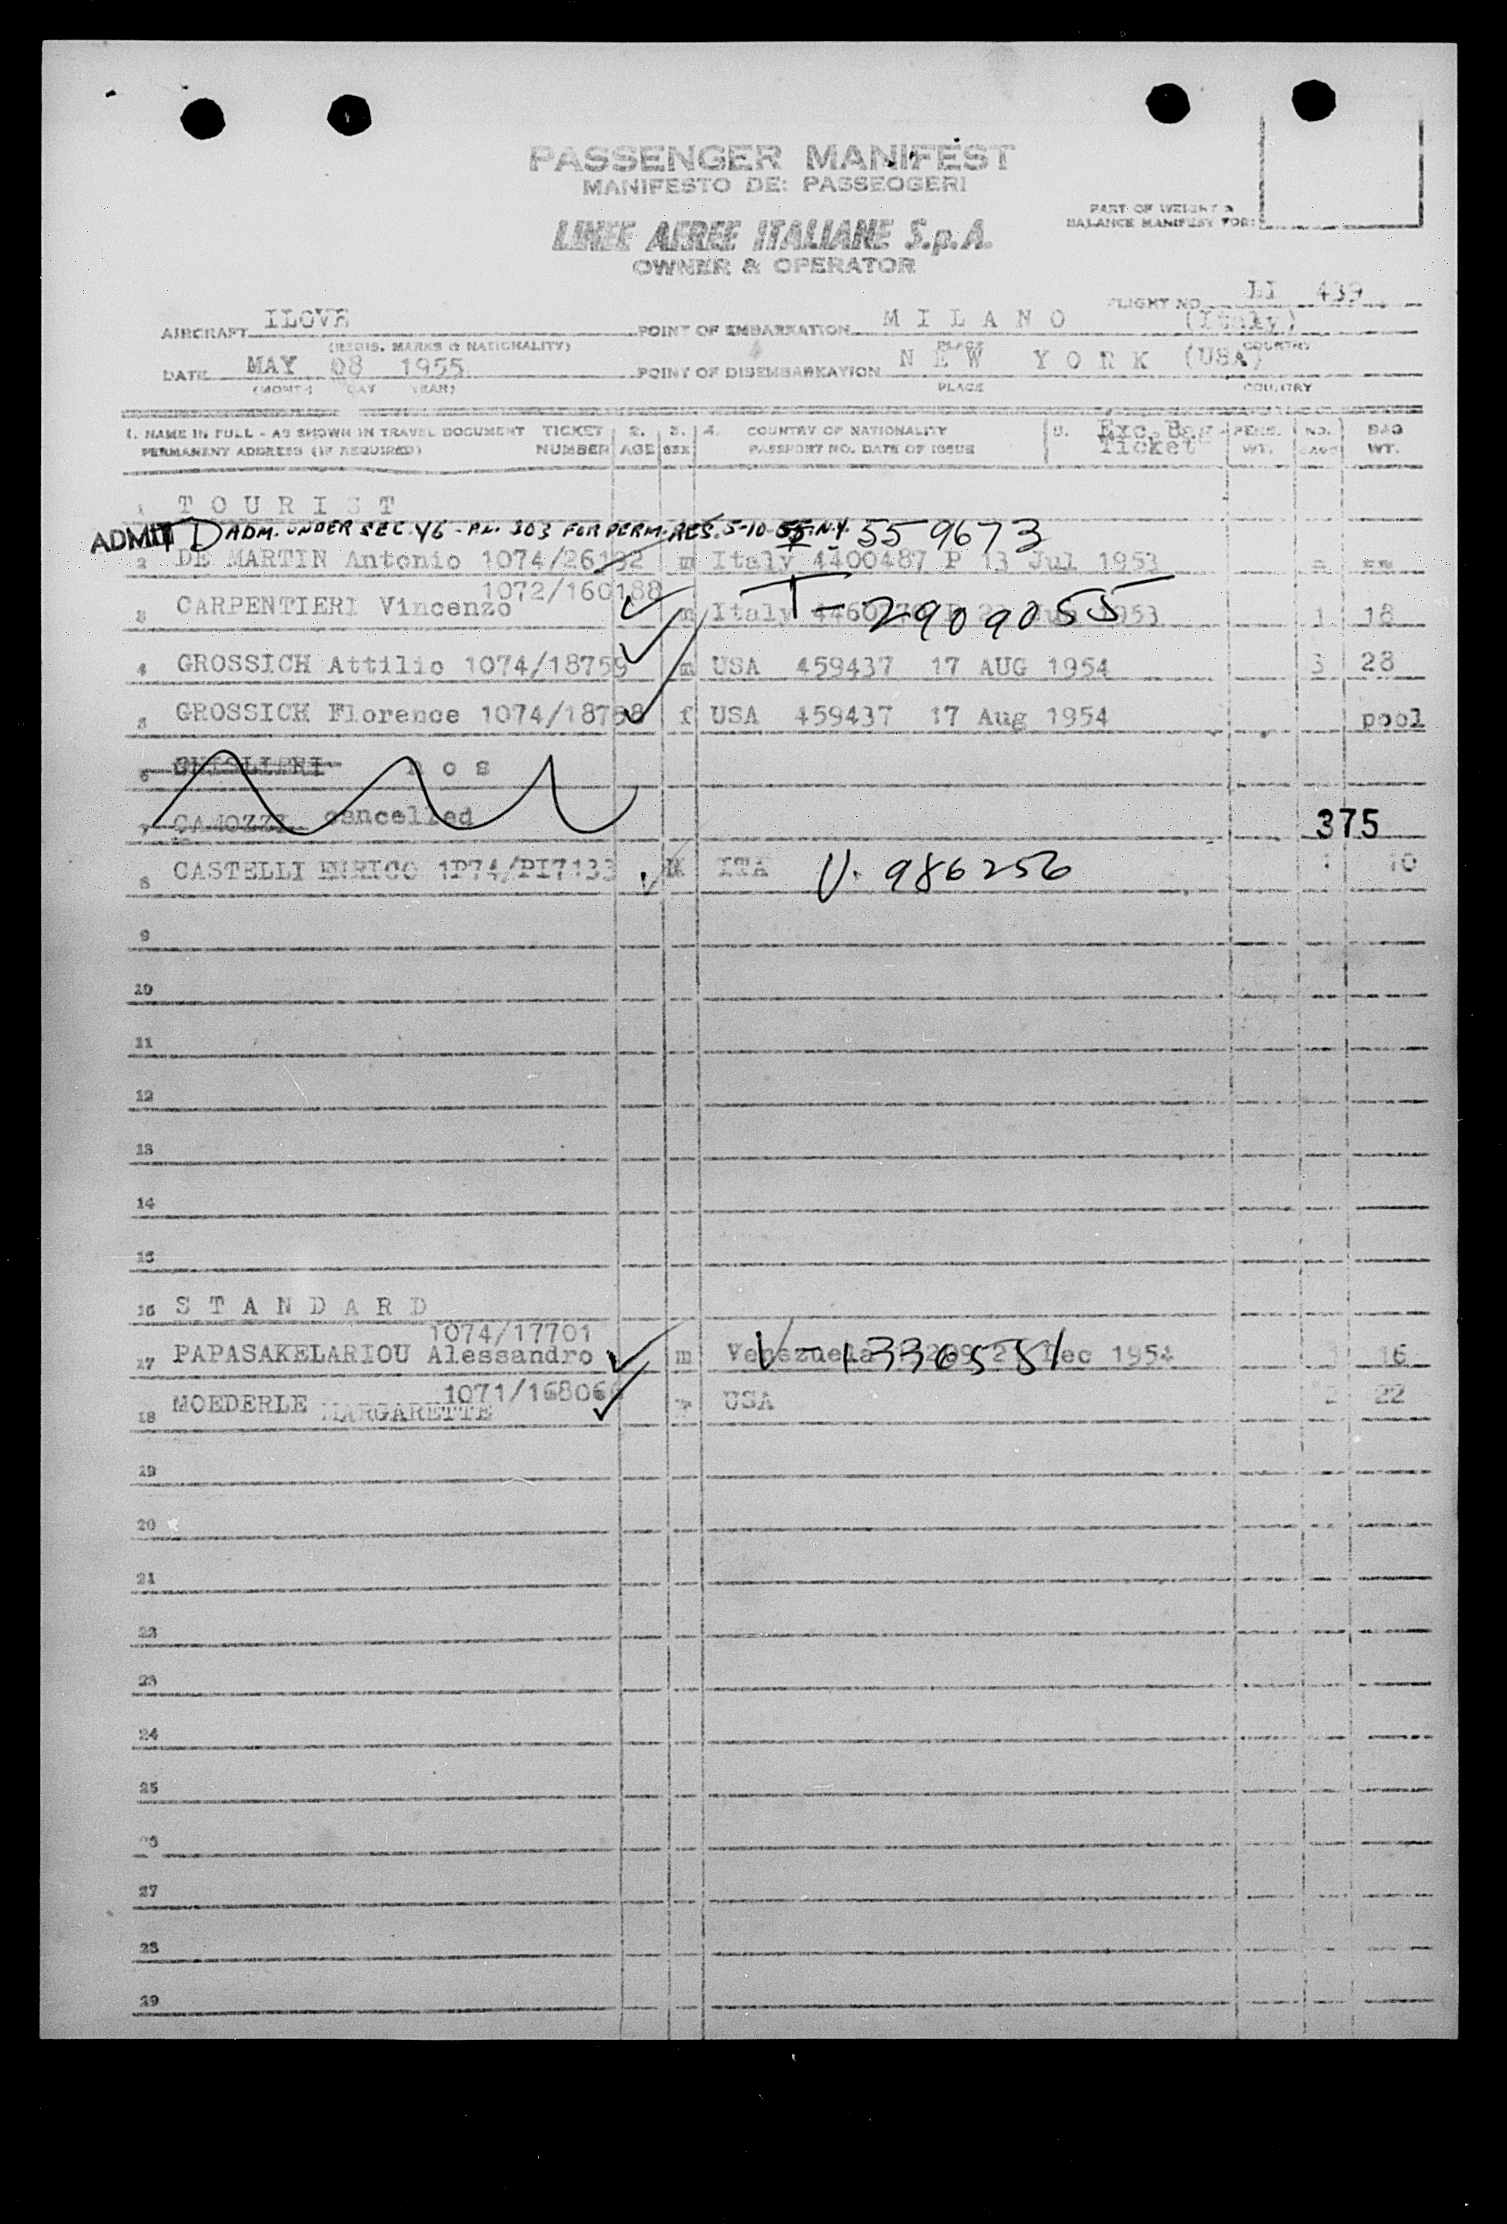 PASSENGER MANIFEST
MANIFESTO DE: PASSEOGERI
LINEE AEREE ITALIANE S.p.A.
OWNER & OPERATOR
PART OF WEIGHT &
BALANCE MANIFEST FOR:
FLIGHT NO. LI 439
AIRCRAFT ILOVE POINT OF EMBARKATION M I L A N O (Italy)
(REGIS. MARKS & NATIONALITY) PLACE COUNTRY
DATE MAY 08 1955 POINT OF DISEMBARKATION N E W Y O R K (USA)
(MONTH DAY YEAR) PLACE COUNTRY
1. NAME IN FULL - AS SHOWN IN TRAVEL DOCUMENT TICKET 2. 3. 4. COUNTRY OF NATIONALITY 5. Exc. Bag PERS. NO. BAG
PERMANENT ADDRESS (IF REQUIRED) NUMBER AGE SEX PASSPORT NO. DATE OF ISSUE Ticket WT. WT.
1 T O U R I S T
ADMIT D ADM. UNDER SEC. 46 - P.L. 203 FOR PERM. RES. 5-10-55 N.Y. 559673
2 DE MARTIN Antonio 1074/26132 m Italy 4400487 P 13 Jul 1953
1072/160188
3 CARPENTIERI Vincenzo m Italy T-2909055 1953 1 18
4 GROSSICH Attilio 1074/18759 m USA 459437 17 AUG 1954 3 28
5 GROSSICH Florence 1074/18758 f USA 459437 17 Aug 1954 pool
6 GHISLIERI n o s
7 CAMOZZI cancelled 375
8 CASTELLI ENRICO 1P74/PI7133 M ITA V. 986256 1 10
9
10
11
12
13
14
15
16 S T A N D A R D
1074/17701
17 PAPASAKELARIOU Alessandro m Venezuela V-1336551 Dec 1954 16
1071/16806
18 MOEDERLE MARGARETTE USA 2 22
19
20
21
22
23
24
25
26
27
28
29